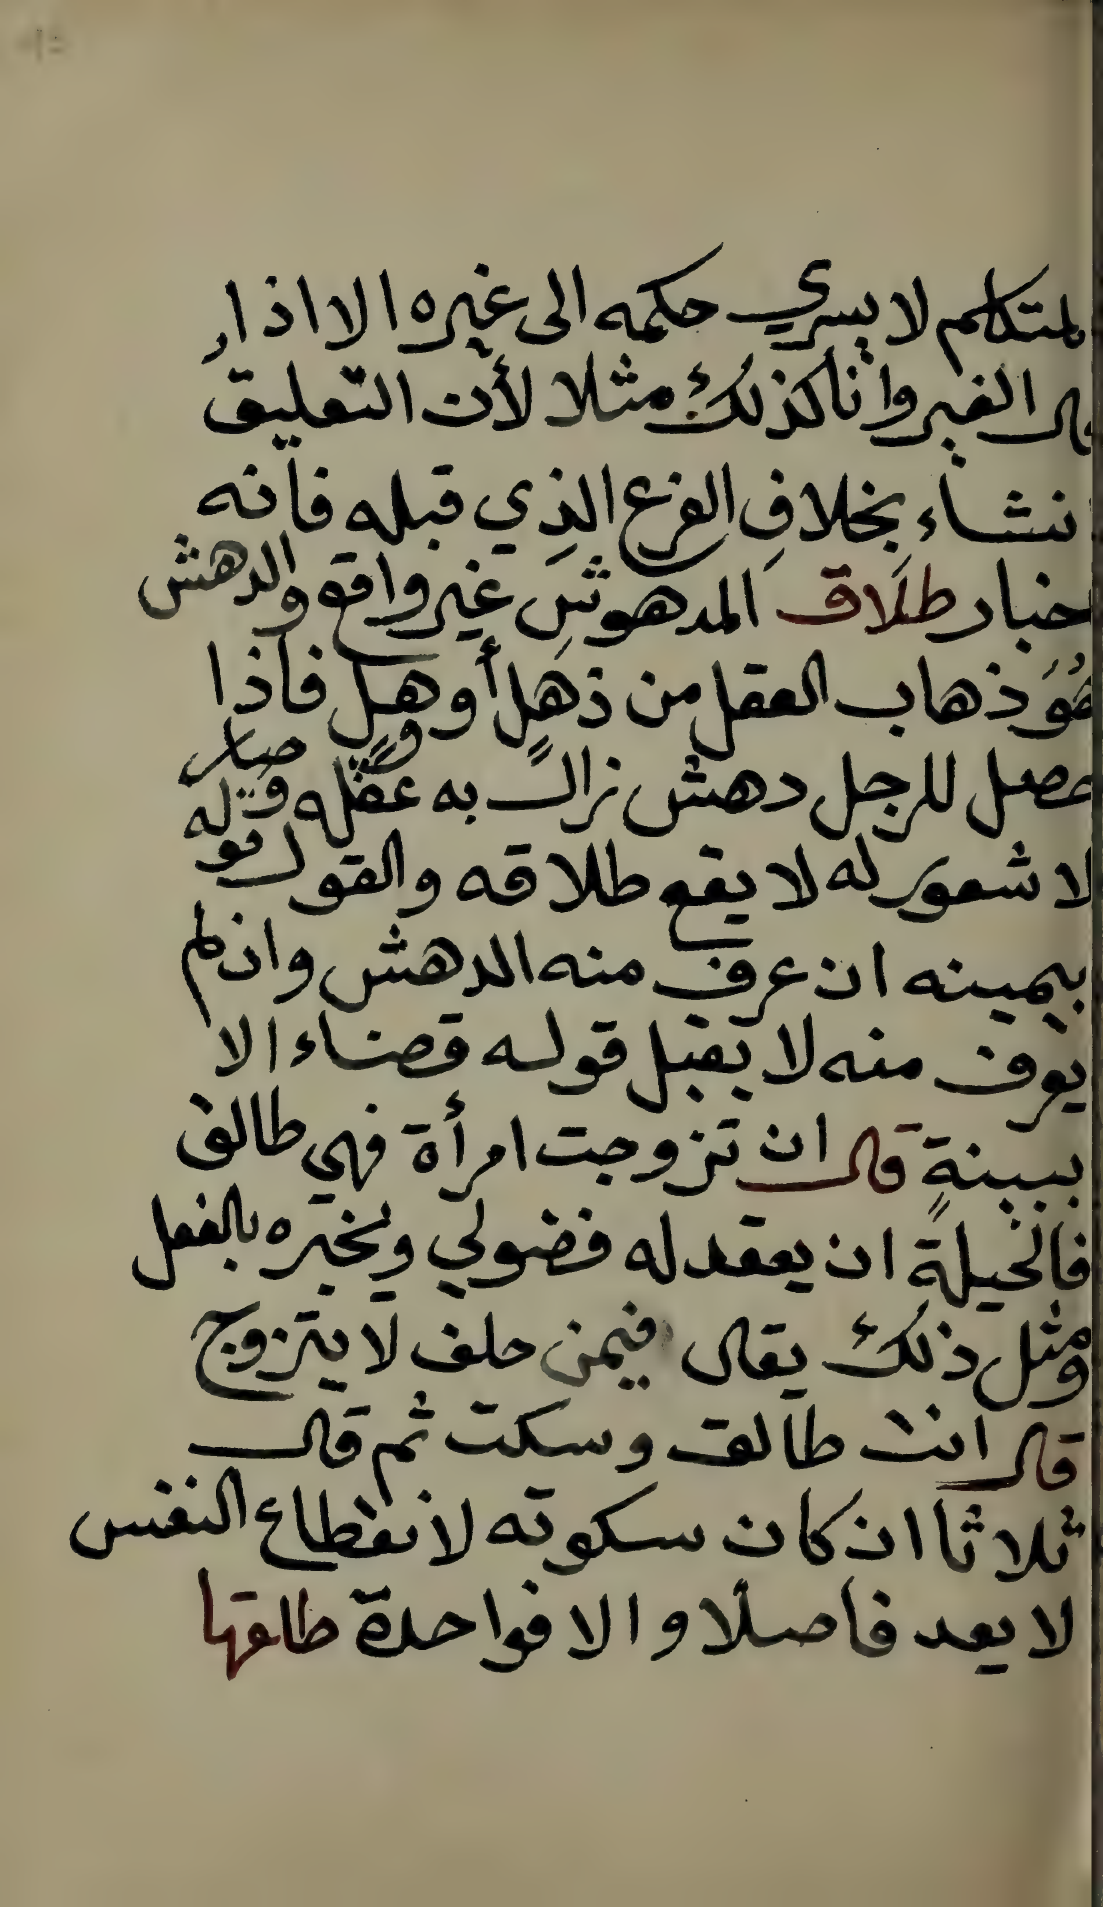 لمتكلم لا يسري حكمه الى غيره الا اذا
قال الغير وانا كذلك مثلا لأن التعليق
انشاء بخلافِ الفرع الذِي قبله فانه
اخبار طلَاق المدهوشِ غير واقع والدهش
هُوَ ذهاب العقل من ذهلٍ أو وهلٍ فاذا
حصل للرجل دهش زال به عقله وصار
لا شعور له لا يقع طلاقه والقول قوله
بيمينه ان عرف منه الدهش وان لم
يعرف منه لا يقبل قوله قضاء الا
ببينةٍ قال ان تزوجت امرأة فهي طالق
فالحيلة ان يعقد له فضولي ويخبره بالفعل
ومثل ذلك يقال فيمن حلف لا يتزوج
قال انت طالق وسكت ثم قال
ثلاثا ان كان سكوته لانقطاع النفس
لا يعد فاصلا والا فواحدة طلقها